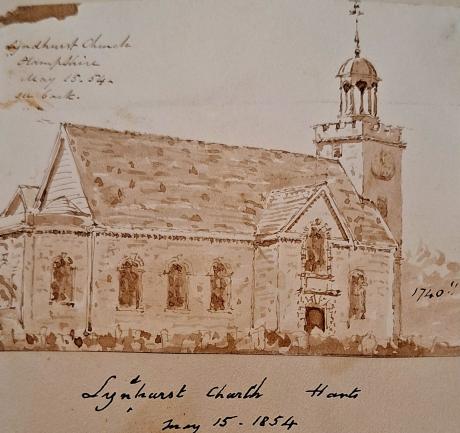 Lyndhurst Church
Hampshire
May 15. 54.
see back.
1740!!
Lyndhurst Church Hants
May 15 - 1854